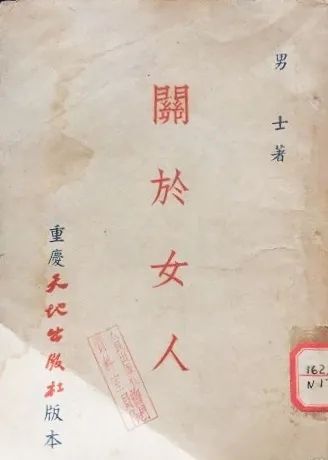 男士著
關於女人
重慶天地出版社版本
162
N17